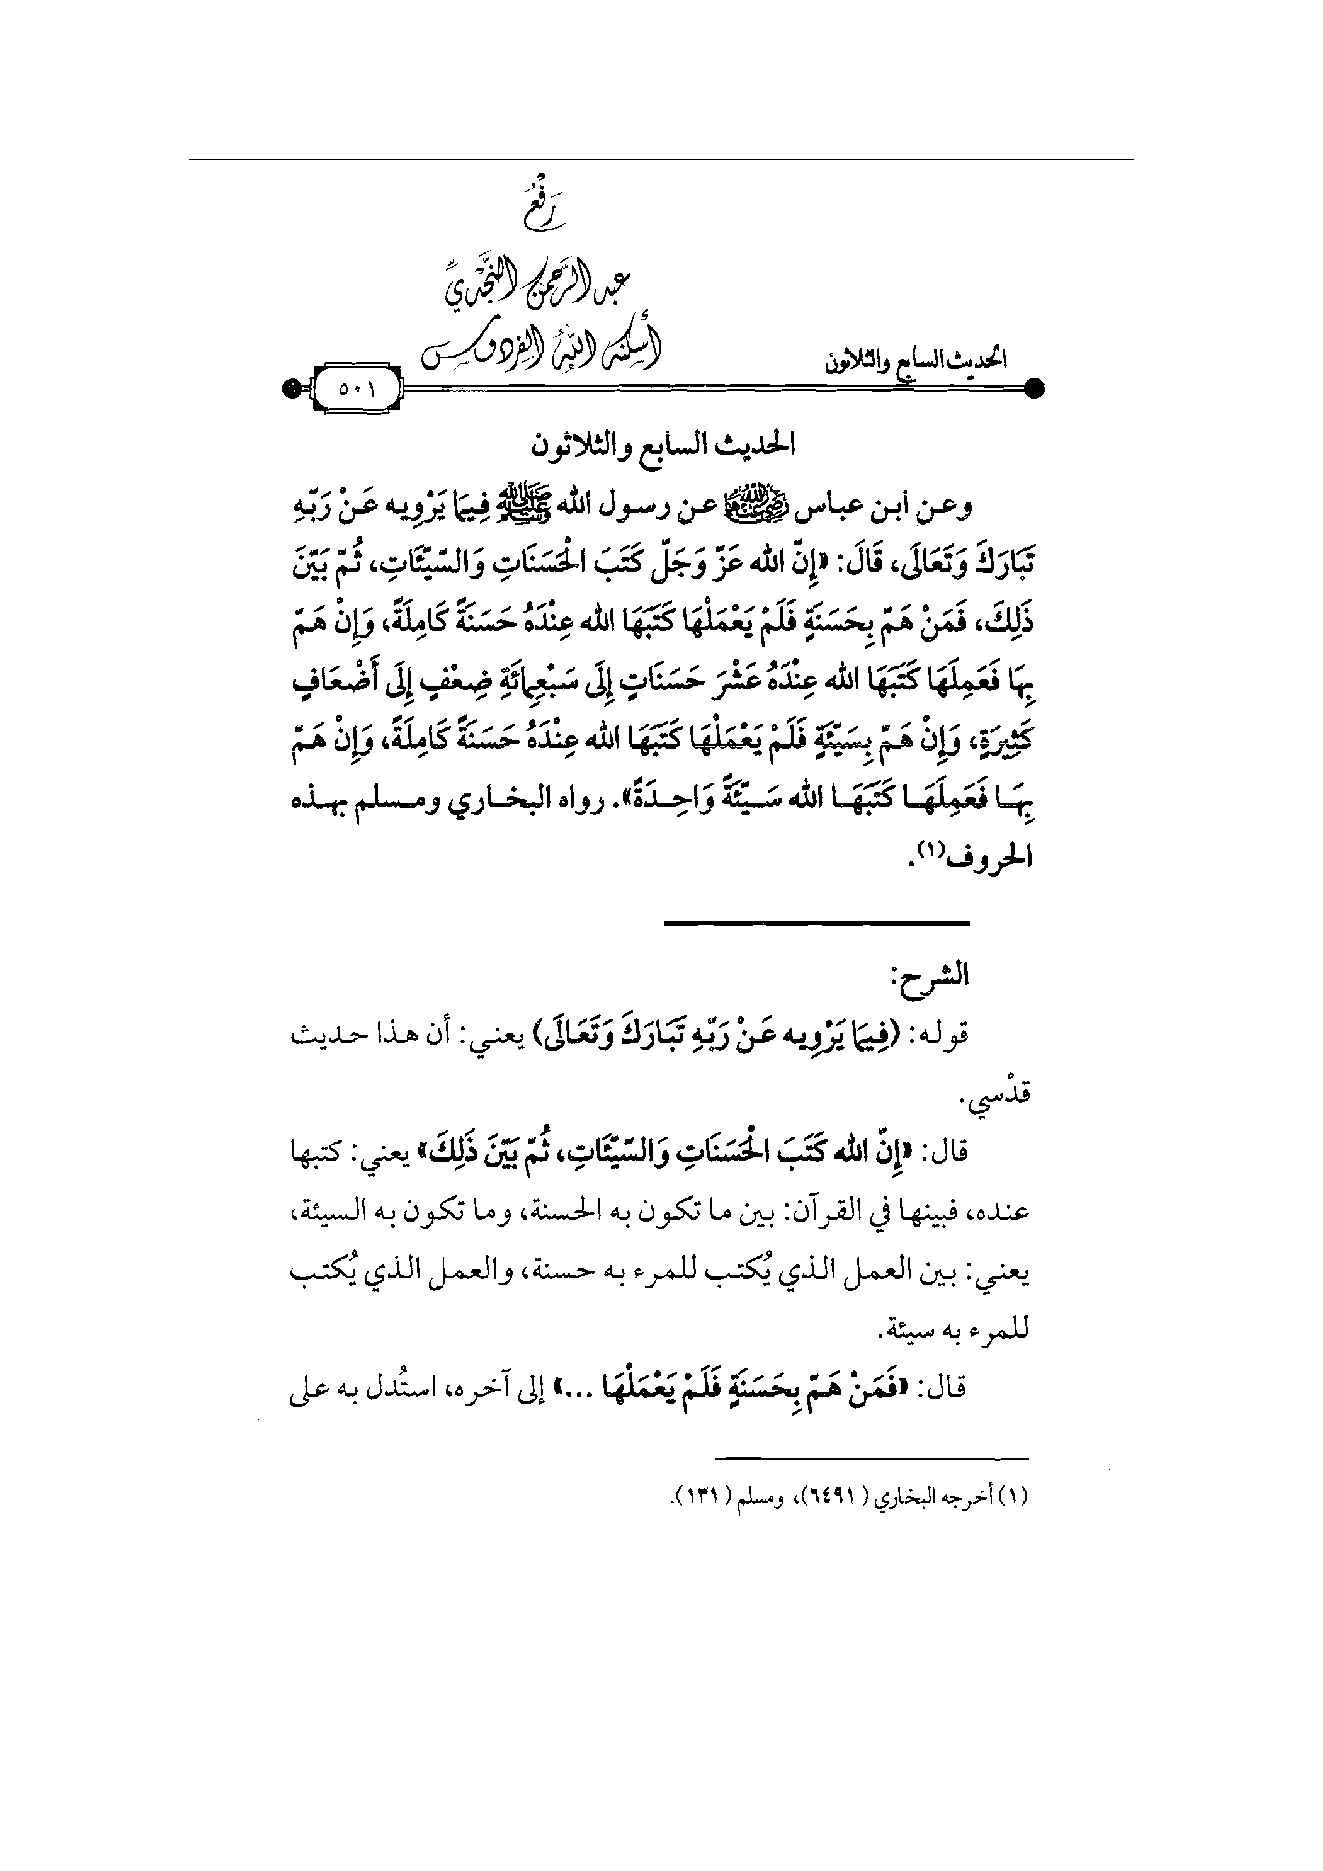 رَفْعُ
عبد الرحمن النجدي
أسكنه الله الفردوس
الحديث السابع والثلاثون
٥٠١
الحديث السابع والثلاثون
وعن ابن عباس رضي الله عنهما عن رسول الله ﷺ فِيمَا يَرْوِيه عَنْ رَبِّهِ
تَبَارَكَ وَتَعَالَى، قَالَ: «إِنَّ الله عَزَّ وَجَلَّ كَتَبَ الْحَسَنَاتِ وَالسَّيِّئَاتِ، ثُمَّ بَيَّنَ
ذَلِكَ، فَمَنْ هَمَّ بِحَسَنَةٍ فَلَمْ يَعْمَلْهَا كَتَبَهَا الله عِنْدَهُ حَسَنَةً كَامِلَةً، وَإِنْ هَمَّ
بِهَا فَعَمِلَهَا كَتَبَهَا الله عِنْدَهُ عَشْرَ حَسَنَاتٍ إِلَى سَبْعِمِائَةِ ضِعْفٍ إِلَى أَضْعَافٍ
كَثِيرَةٍ، وَإِنْ هَمَّ بِسَيِّئَةٍ فَلَمْ يَعْمَلْهَا كَتَبَهَا الله عِنْدَهُ حَسَنَةً كَامِلَةً، وَإِنْ هَمَّ
بِهَا فَعَمِلَهَا كَتَبَهَا الله سَيِّئَةً وَاحِدَةً». رواه البخاري ومسلم بهذه
الحروف(١).
الشرح:
قوله: (فِيمَا يَرْوِيه عَنْ رَبِّهِ تَبَارَكَ وَتَعَالَى) يعني: أن هذا حديث
قدْسي.
قال: «إِنَّ الله كَتَبَ الْحَسَنَاتِ وَالسَّيِّئَاتِ، ثُمَّ بَيَّنَ ذَلِكَ» يعني: كتبها
عنده، فبينها في القرآن: بين ما تكون به الحسنة، وما تكون به السيئة،
يعني: بين العمل الذي يُكتب للمرء به حسنة، والعمل الذي يُكتب
للمرء به سيئة.
قال: «فَمَنْ هَمَّ بِحَسَنَةٍ فَلَمْ يَعْمَلْهَا ...» إلى آخره، استُدل به على
(١) أخرجه البخاري (٦٤٩١)، ومسلم (١٣١).